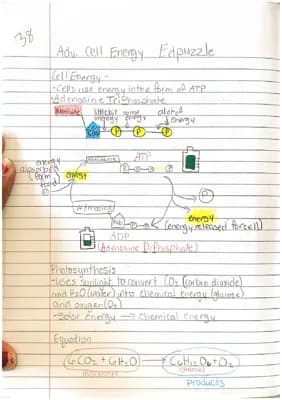 38
Adv. Cell Energy Edpuzzle
Cell Energy -
• Cells use energy in the form of ATP
• Adenosine Triphosphate
Adenosine little bit energy some energy a lot of energy
P P P
energy absorbed from food
energy
Adenosine ATP
P
Adenosine
energy
(energy released for cell)
ADP
(Adenosine Diphosphate)
Photosynthesis
- Uses sunlight to convert CO2 (carbon dioxide)
and H2O (water) into chemical energy (glucose)
and oxygen (O2)
- Solar energy → chemical energy
Equation
6CO2 + 6H2O → C6H12O6 + O2
reactants glucose
products